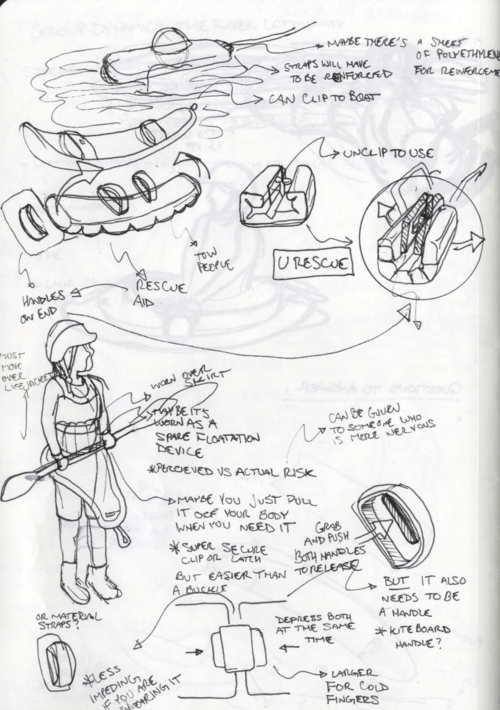 MAYBE THERE'S A SHEET
OF POLYETHYLENE
FOR REINFORCEMENT
STRAPS WILL HAVE
TO BE REINFORCED
CAN CLIP TO BOAT
UNCLIP TO USE
TOW
PEOPLE
U RESCUE
HANDLES
ON END
RESCUE
AID
MUST
MOVE
OVER
LIFEJACKET
WORN OVER
SKIRT
MAYBE IT'S
WORN AS A
SPARE FLOATATION
DEVICE
*PERCIEVED VS ACTUAL RISK
CAN BE GIVEN
TO SOMEONE WHO
IS MORE NERVOUS
MAYBE YOU JUST PULL
IT OFF YOUR BODY
WHEN YOU NEED IT
*SUPER SECURE
CLIP OR LATCH
BUT EASIER THAN
A BUCKLE
GRAB
AND PUSH
BOTH HANDLES
TO RELEASE
BUT IT ALSO
NEEDS TO BE
A HANDLE
*KITEBOARD
HANDLE?
OR MATERIAL
STRAPS?
DEPRESS BOTH
AT THE SAME
TIME
*LESS
IMPEDING
IF YOU ARE
WEARING IT
LARGER
FOR COLD
FINGERS
QUESTIONS TO ANSWER: